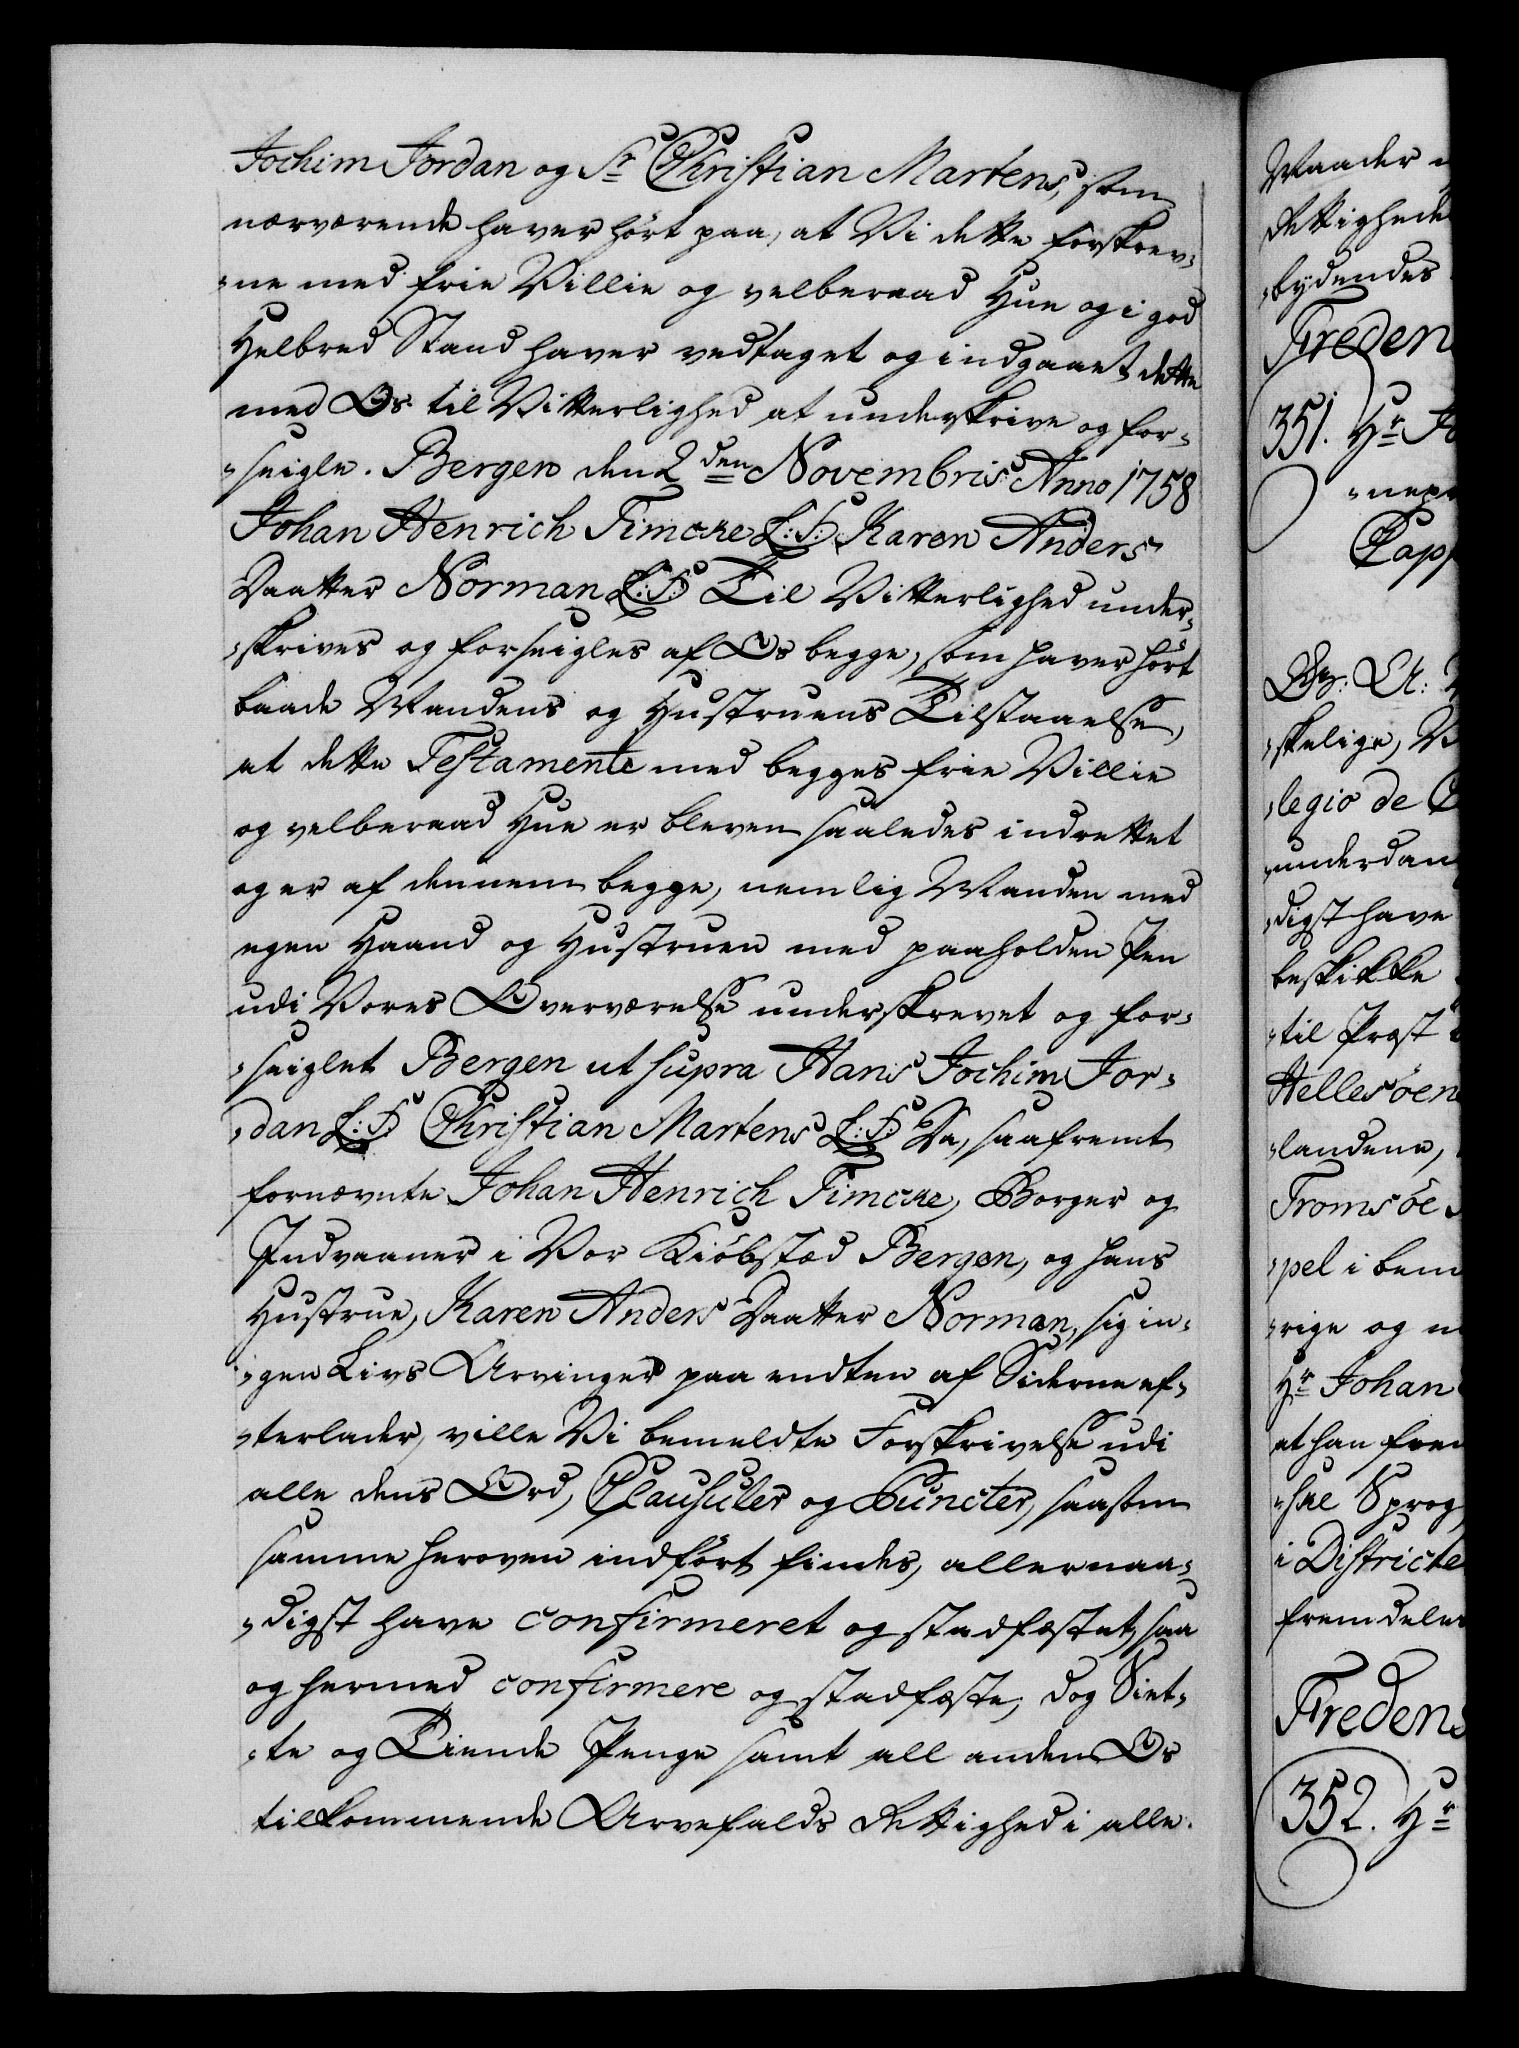 Jochim Jordan og Sr Christian Martens, som
nærværende haver hört paa, at Vi dette forskrev-
-ne med frie Villie og velberaad Hue og i god
Helbred Stand haver vedtaget og indgaaet dette
med Os til Vitterlighed at underskrive og for-
-seigle. Bergen den 2den Novembris Anno 1758
Johan Henrich Timcke L:S: Karen Anders
Daatter Norman L:S: Til Vitterlighed under-
-skrives og forseigles af Os begge, som haver hört
baade Mandens og Hustruens Tilstaaelse,
at dette Testamente med begges frie Villie
og velberaad Hue er bleven saaledes indrettet
og er af dennem begge, nemlig Manden med
egen Haand og Hustruen med paaholden Pen
udi Vores Overværelse underskrevet og for-
-seiglet Bergen ut supra Hans Jochim Jor-
-dan L:S: Christian Martens L:S: Da, saafremt
fornævnte Johan Henrich Timcke, Borger og
Indvaaner i Vor Kiöbstæd Bergen, og hans
Hustrue, Karen Anders Daatter Norman, sig in-
-gen Livs Arvinger paa endten af Siderne ef-
-terlader, ville Vi bemeldte Forskrivelse udi
alle dens Ord, Clausuler og Puncter, saasom
samme heroven indfört findes, allernaa-
-digst have confirmeret og stadfæstet, saa
og hermed confirmere og stadfæste; dog Siet-
-te og Tiende Penge samt all anden Os
tilkommende Arvefalds Rettighed i alle
Maader
Rettighede
-bydendes
Freden
351. Hr Jo
Capp
skelige, V
-legio de
underdan
-digst have
beskikke
-til Præst
Hellesöen
-landene,
Tromsöe
-pel i bem
-rige og
Hr Johan
at han frem
-ske Sprog
i Districte
fremdeles
Fredens
352. Hr